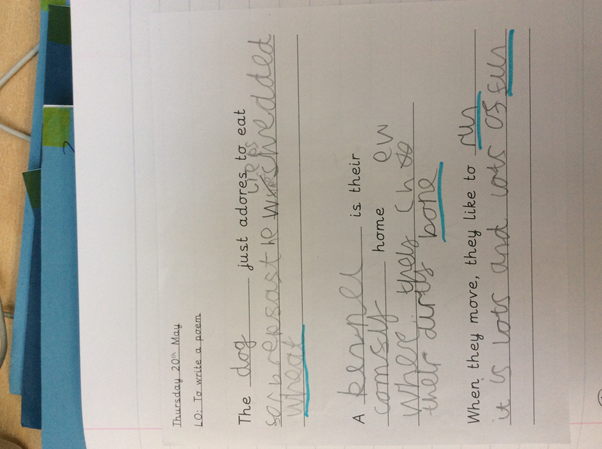 Thursday 20th May
LO: To write a poem
The dog just adores to eat
shredded
wheat
A kennel is their
comsly home
Where they Chew
their dirty bone
When they move, they like to run
it is lots and lots of fun